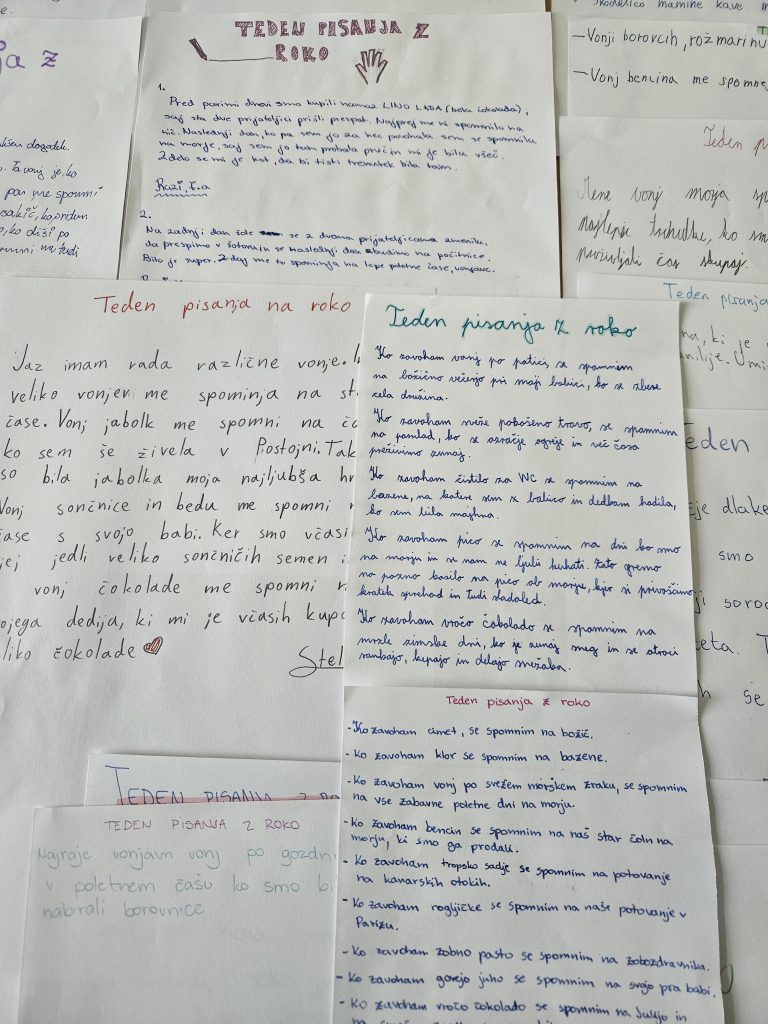 skodelico mamine kave in
—Vonji borovcih, rožmarinu
—Vonj bencina me spomne
TEDEN PISANJA Z
ROKO
1.
Pred parimi dnevi smo kupili namaz LINO LADA (bela čokolada),
saj sta dve prijateljici prišli prespat. Najprej me ni spomnilo na
nič. Naslednji dan, ko pa sem jo za hec povohala sem se spomnila
na morje, saj sem jo tam probala prvič in mi je bila všeč.
Zdelo se mi je kot, da bi tisti trenutek bila tam.
2.
Na zadnji dan šole se z dvema prijateljicama zmenila,
da prespimo v šotoru in se naslednji dan zbudimo na počitnice.
Bilo je super. Zdaj me to spominja na lepe poletne čase,
dogodek.
Ta vonj je, ko
par me spomni
vsakič, ko pridem
ko diši po
me tudi
Teden
Mene vonj morja
najlepše trenutke, ko smo
preživljali čas skupaj.
Teden pisanja
na, ki je
Teden pisanja na roko
Jaz imam rada različne vonje.
veliko vonjev me spominja na
čase. Vonj jabolk me spomni na
ko sem še živela v Postojni. Tak
so bila jabolka moja najljubša
Vonj sončnice in bedu me spomni
čase s svojo babi. Ker smo včasi
jej jedli veliko sončničih semen i
vonj čokolade me spomni
ojega dedija, ki mi je včasih kupo
liko čokolade
Stel
Teden pisanja z roko
Ko zavoham vonj po potici, se spomnim
na božično večerjo pri moji babici, ko se zbere
cela družina.
Ko zavoham sveže pokošeno travo, se spomnim
na pomlad, ko se ozračje ogreje in več časa
preživimo zunaj.
Ko zavoham čistilo za WC se spomnim na
bazene, na katere sem z babico in dedkom hodila,
ko sem bila majhna.
Ko zavoham pico se spomnim na dni ko smo
na morju in se nam ne ljubi kuhati. Zato gremo
na pozno kosilo na pico ob morju, kjer si privoščimo
kratek sprehod in tudi sladoled.
Ko zavoham vročo čokolado se spomnim na
mrzle zimske dni, ko je zunaj sneg in se otroci
sankajo, kepajo in delajo snežaka.
Teden
dlake
smo
soro
eta. T
še
Teden pisanja z roko
-Ko zavoham cimet, se spomnim na božič.
- Ko zavoham klor se spomnim na bazene.
- Ko zavoham vonj po svežem morskem zraku, se spomnim
na vse zabavne poletne dni na morju.
- Ko zavoham bencin se spomnim na naš star čoln na
morju, ki smo ga prodali.
- Ko zavoham tropsko sadje se spomnim na potovanje
na kanarskih otokih.
- Ko zavoham rogljičke se spomnim na naše potovanje v
Parizu.
- Ko zavoham zobno pasto se spomnim na zobozdravnika.
- Ko zavoham govejo juho se spomnim na svojo pra babi.
- Ko zavoham vročo čokolado se spomnim na Julijo in
TEDEN PISANJA Z
TEDEN PISANJA Z ROKO
Najraje vonjam vonj po gozdni
v poletnem času ko smo bi
nabirali borovnice